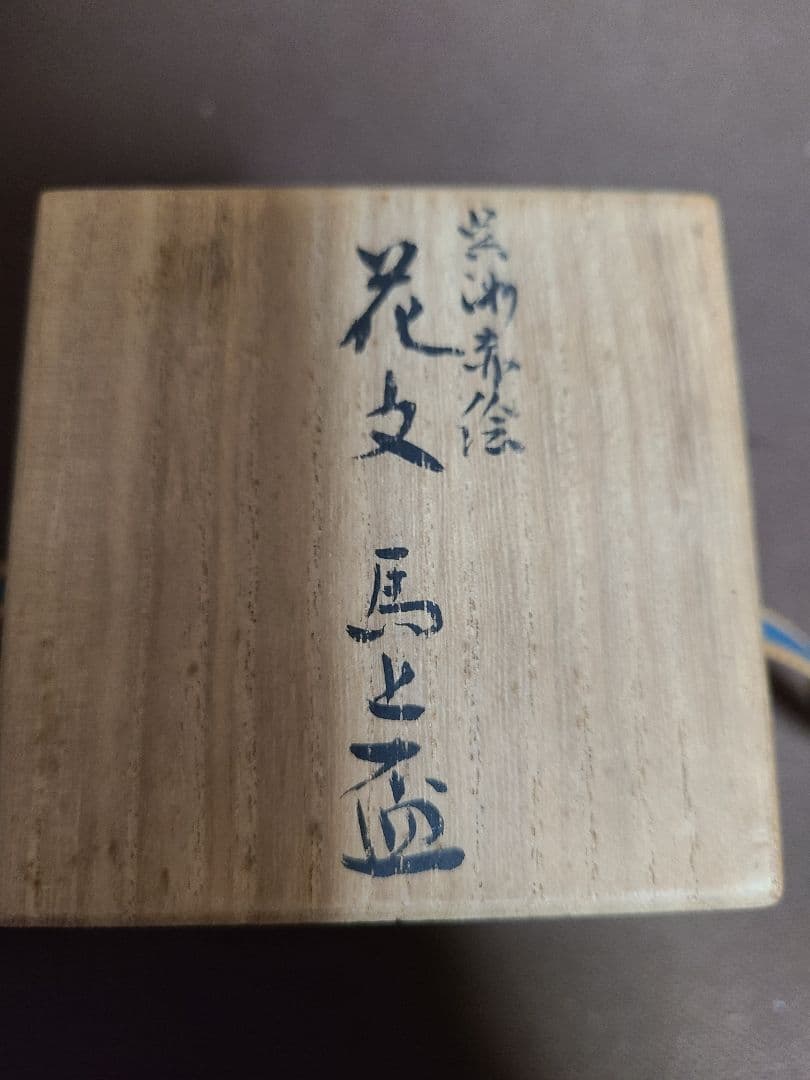 呉洲赤絵
花文 馬上盃